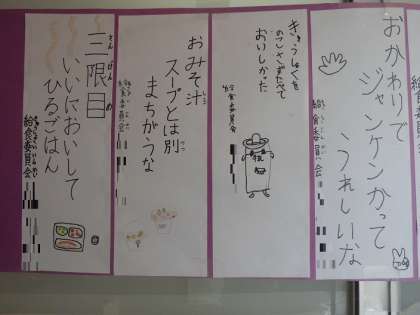 おかわりで
ジャンケンかって
うれしいな
給食委員会
きゅうしょくを
のこさずたべて
おいしかった
給食委員会
おみそ汁
スープとは別
まちがうな
給食委員会
三限目
いいにおいして
ひるごはん
給食委員会